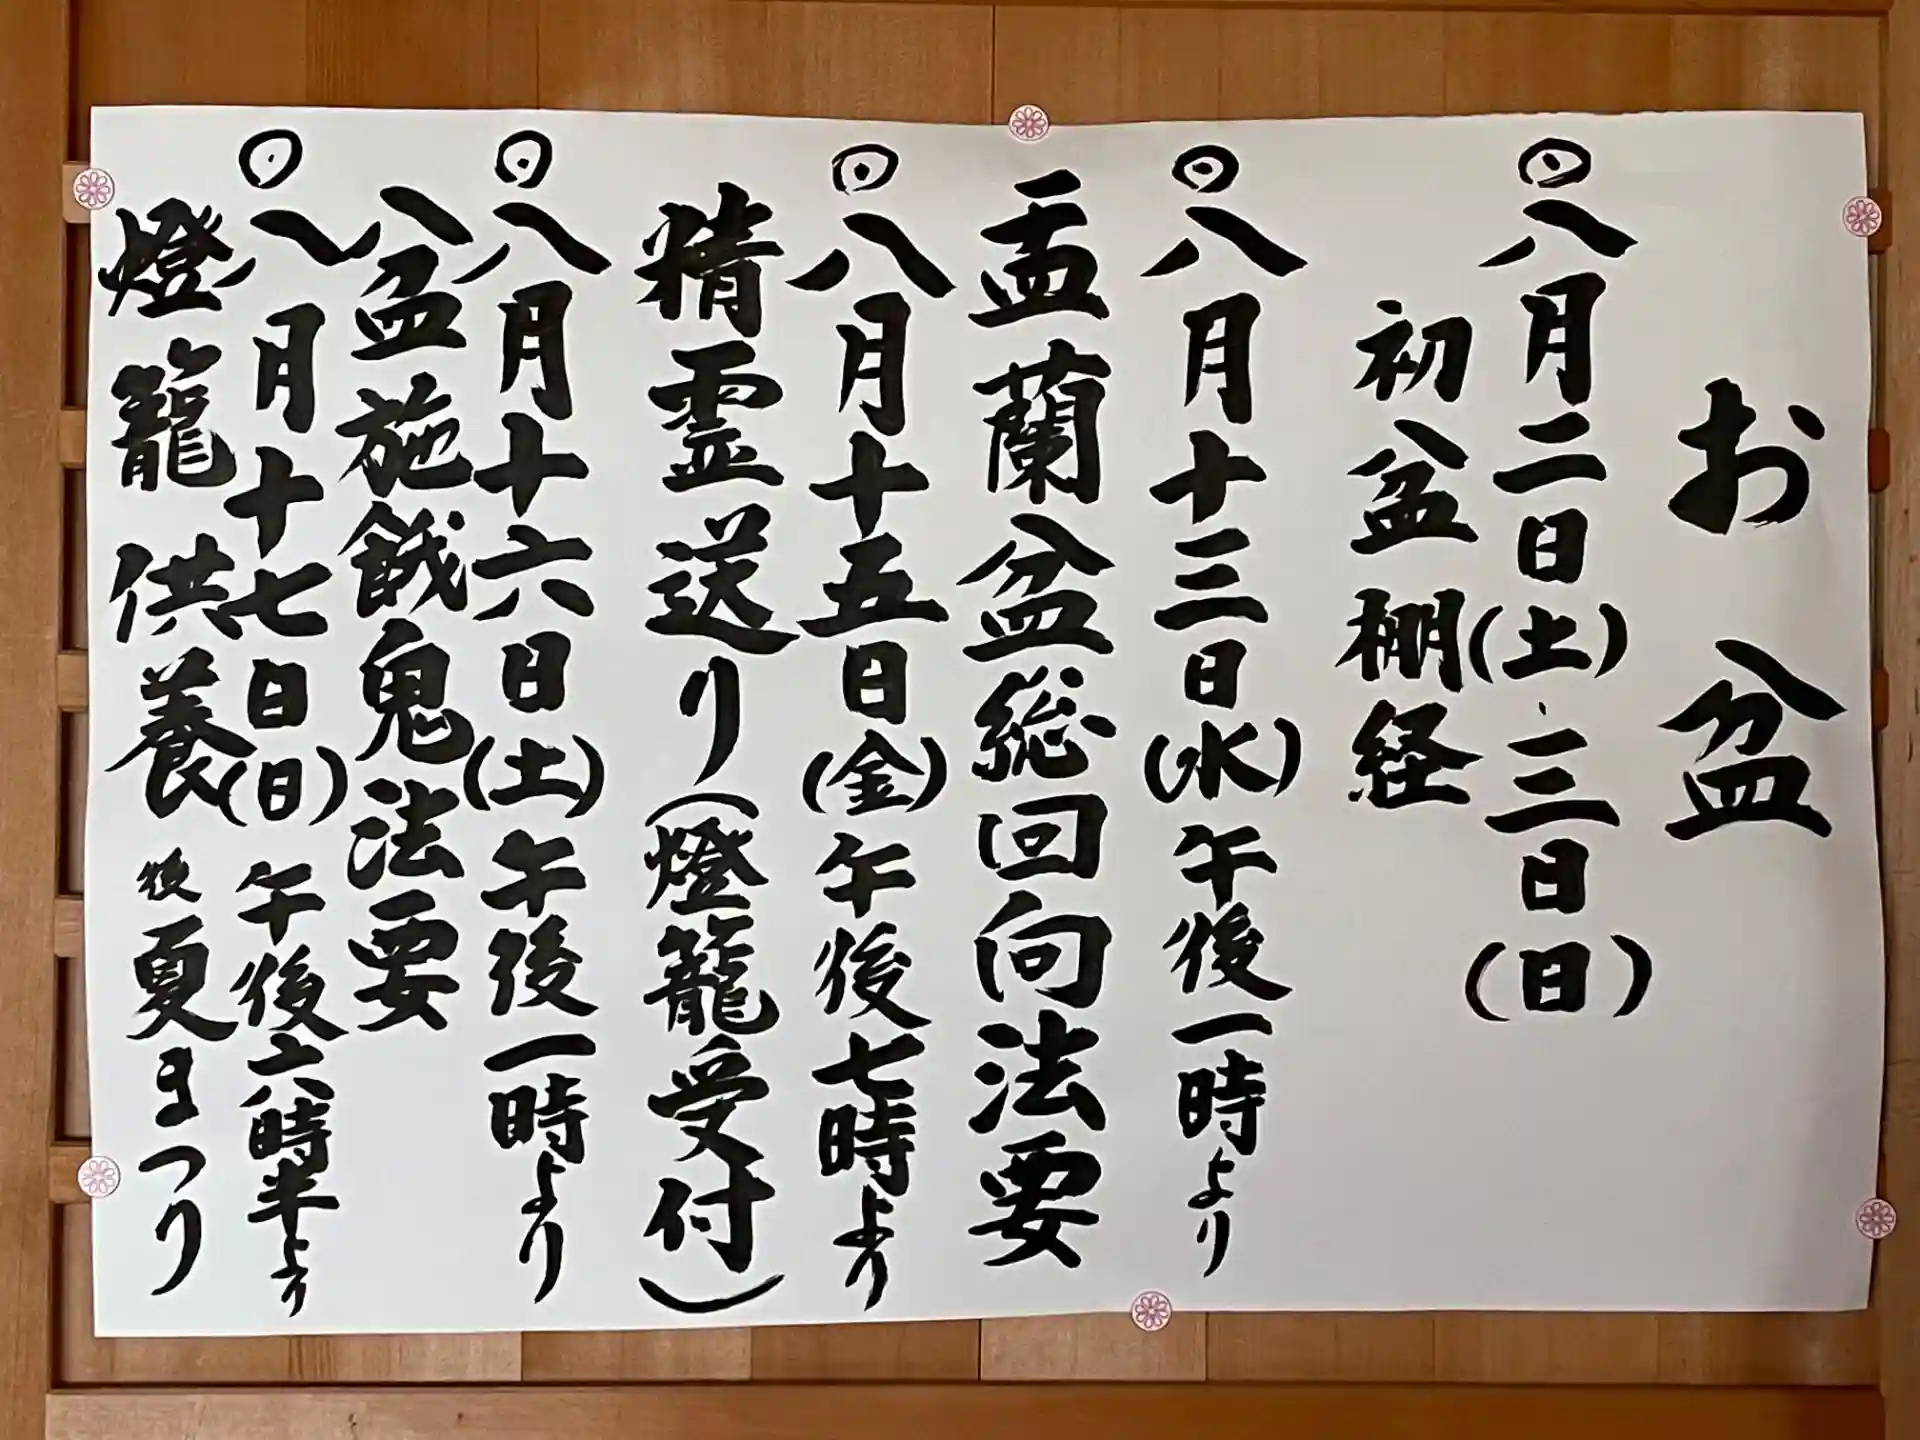 お盆
◎八月二日(土)、三日(日)
初盆棚経
◎八月十三日(水)午後一時より
盂蘭盆総回向法要
◎八月十五日(金)午後七時より
精霊送り(燈籠受付)
◎八月十六日(土)午後一時より
盆施餓鬼法要
◎八月十七日(日)午後六時半より
燈籠供養後夏まつり